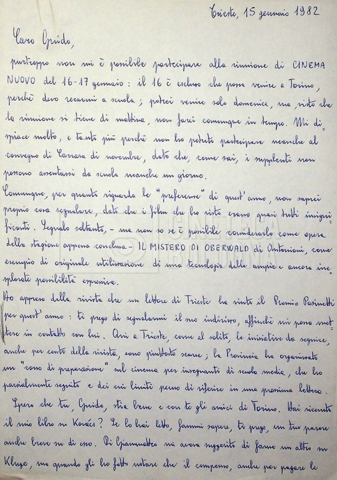 Trieste, 15 gennaio 1982
Caro Guido,
purtroppo non mi è possibile partecipare alla riunione di CINEMA
NUOVO del 16-17 gennaio : il 16 è escluso che possa venire a Torino,
perché devo recarmi a scuola ; potrei venire solo domenica, ma, visto che
la riunione si tiene di mattina, non farei comunque in tempo. Mi di-
spiace molto, e tanto più perché non ho potuto partecipare neanche al
convegno di Carrara di novembre, dato che, come sai, i supplenti non
possono assentarsi da scuola neanche un giorno.
Comunque, per quanto riguarda le "preferenze" di quest'anno, non saprei
proprio cosa segnalare, dato che i film che ho visto erano quasi tutti insigni-
ficanti. Segnalo soltanto, - ma non so se è possibile considerarlo come opera
della stagione appena conclusa - IL MISTERO DI OBERWALD di Antonioni, come
esempio di originale utilizzazione di una tecnologia dalle ampie e ancora ine-
splorate possibilità espressive.
Ho appreso dalla rivista che un lettore di Trieste ha vinto il Premio Pasinetti
per quest'anno : ti prego di segnalarmi il suo indirizzo, affinché mi possa met-
tere in contatto con lui. Qui a Trieste, come al solito, le iniziative da seguire,
anche per conto della rivista, sono piuttosto scarse ; la Provincia ha organizzato
un "corso di preparazione" sul cinema per insegnanti di scuola media, che ho
parzialmente seguito e dei cui limiti penso di riferire in una prossima lettera.
Spero che tu, Guido, stia bene e con te gli amici di Torino. Hai ricevuto
il mio libro su Kovács? Se lo hai letto, fammi sapere, ti prego, un tuo parere
anche breve su di esso. Di Giammatteo mi aveva suggerito di farne un altro su
Kluge, ma quando gli ho fatto notare che il compenso, anche per pagare le